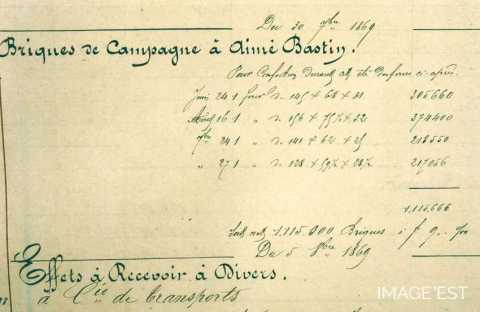 Du 30 9bre 1869
Briques de Campagne à Aimé Bastin.
Pour Confection durant été
Juin 24 1 four de 145 × 68 × 31 305660
Août 16 1 " de 156 × 75½ × 32 374400
7bre 24 1 " de 141 × 62 × 25 218550
" 27 1 " de 128 × 59½ × 28½ 217056
1,115,666
1,115,000 Briques à f 9
Du 5 8bre 1869
Effets à Recevoir à Divers.
à Cie de transports
IMAGE'EST